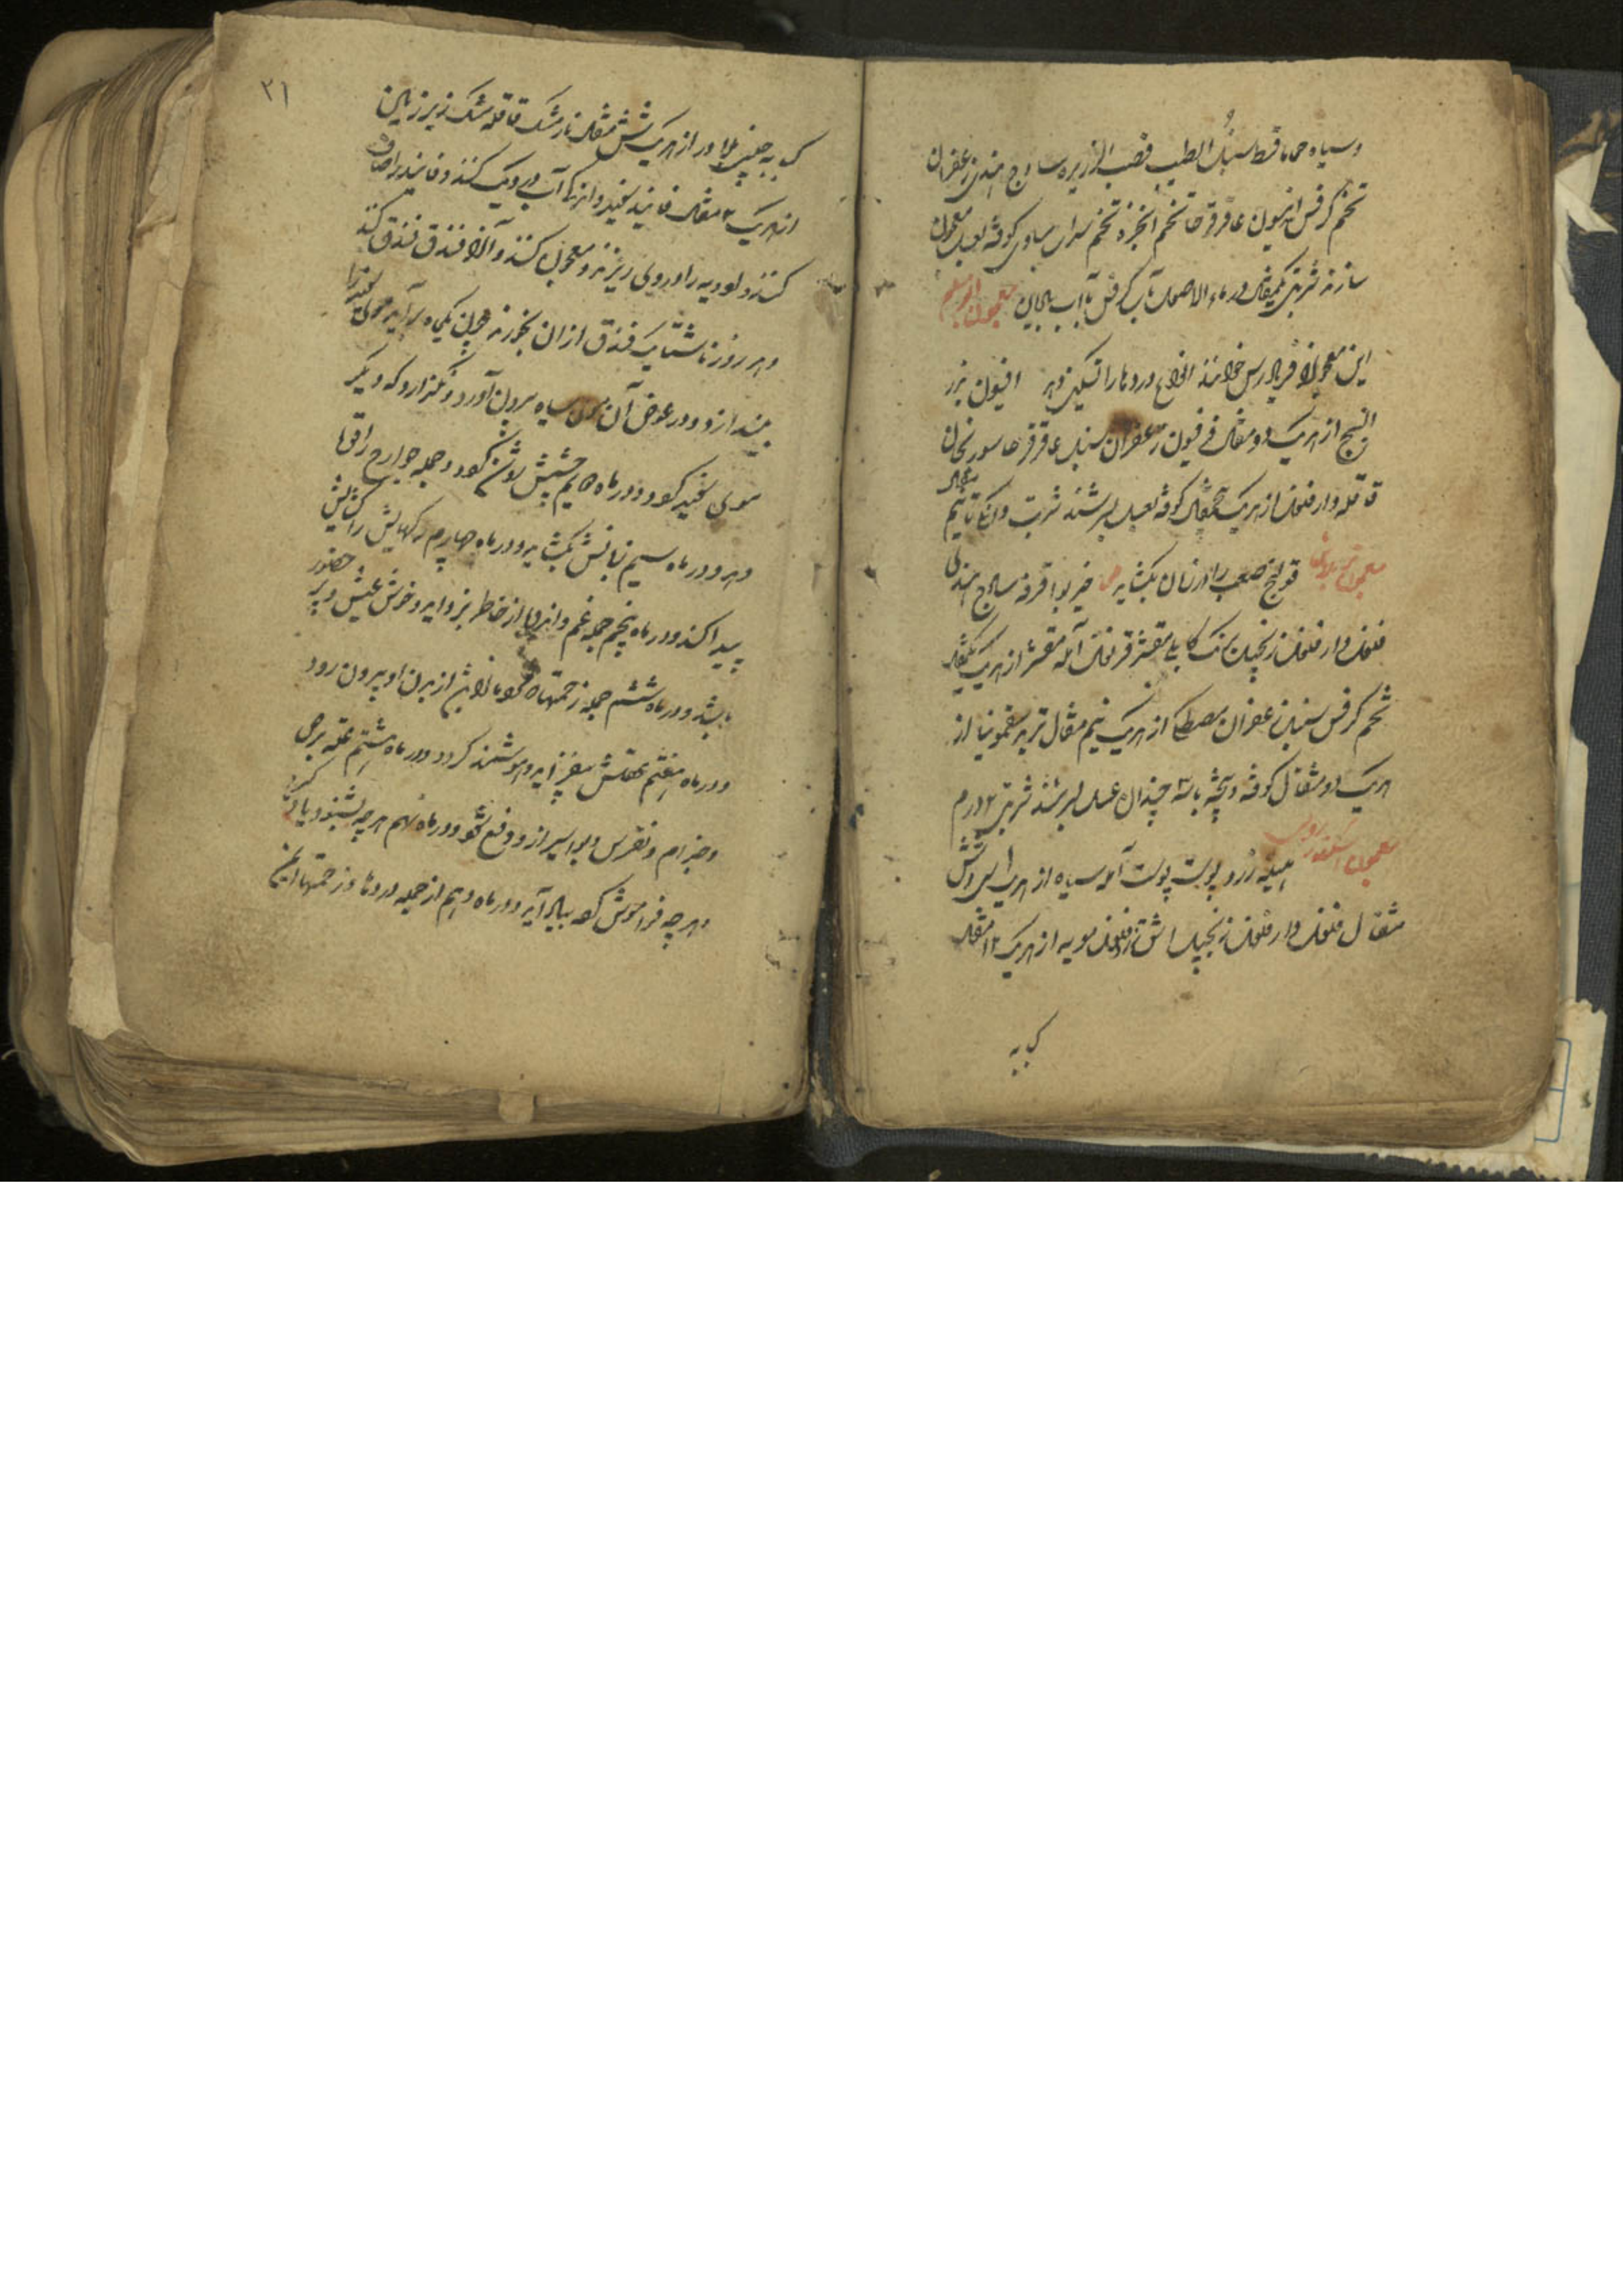 وسیاه حماما قسط سنبل الطیب قصب الذریره ساذج هندی زعفران
تخم کرفس انیسون عاقرقرحا تخم انجره تخم سداب مساوی کوفته بعسل معجون
سازند شربتی یکمثقال در ماء الاصول یا آب کرفس یا آب بادیان معجون
این معجونرا فریادرس خوانند انواع دردها را تسکین دهد افیون بزر
البنج از هریک دو مثقال فرفیون زعفران سنبل عاقرقرحا سورنجان
قاقله دارفلفل از هریک مثقال کوفته بعسل بسرشند شربت دانگی تا نیم مثقال
معجون قولنج صعب را در زمان بکشاید خیربوا قرفه ساذج هندی
فلفل دارفلفل زنجبیل برنک کابلی مقشر قرنفل آمله مقشر از هریک یکمثقال
تخم کرفس سنبل زعفران مصطکی از هریک نیم مثقال تربد سقمونیا از
هریک دو مثقال کوفته و بیخته با سه چندان عسل بسرشند شربتی ۲ درم
معجون هلیله زرد پوست پوست آمله سیاه از هریک شش
مثقال فلفل دارفلفل زنجبیل فلفل مویه از هریک ۱۲ مثقال
کبابه
۳۱
کبابه چینی بلادر از هریک شش مثقال نارمشک قاقله مشک زیر
از هریک ۲ مثقال فانید سفید و انرا با آب در دیک کنند و فانید را صاف
کنند و ادویه را در وی ریزند و معجون کنند و آنرا فندق فندق کنند
و هر روز ناشتا یک فندق از ان بخورند چون یکماه برآید موی سفید را
بیندازد و در عوض آن موی سیاه بیرون آورد و نگذارد که دیگر
موی سفید گردد و در ماه دویم چشمش روشن گردد و جمله جوارح را قوت
دهد و در ماه سیم زبانش بکشاید و در ماه چهارم رکهایش را
پیدا کند و در ماه پنجم جمله غم و اندوه از خاطر بزداید و خوش عیش و پر حضور
باشد و در ماه ششم جمله زحمتهاء از بدن او بیرون رود
و در ماه هفتم عقلش بیفزاید و هوشمند کردد و در ماه هشتم علة برص
و جذام و نقرس و بواسیر از و دفع شود و در ماه نهم هرچه بشنود یاد گیرد
و هرچه فراموش کرده بیاد آید و در ماه دهم از جمله دردها و زحمتها ایمن